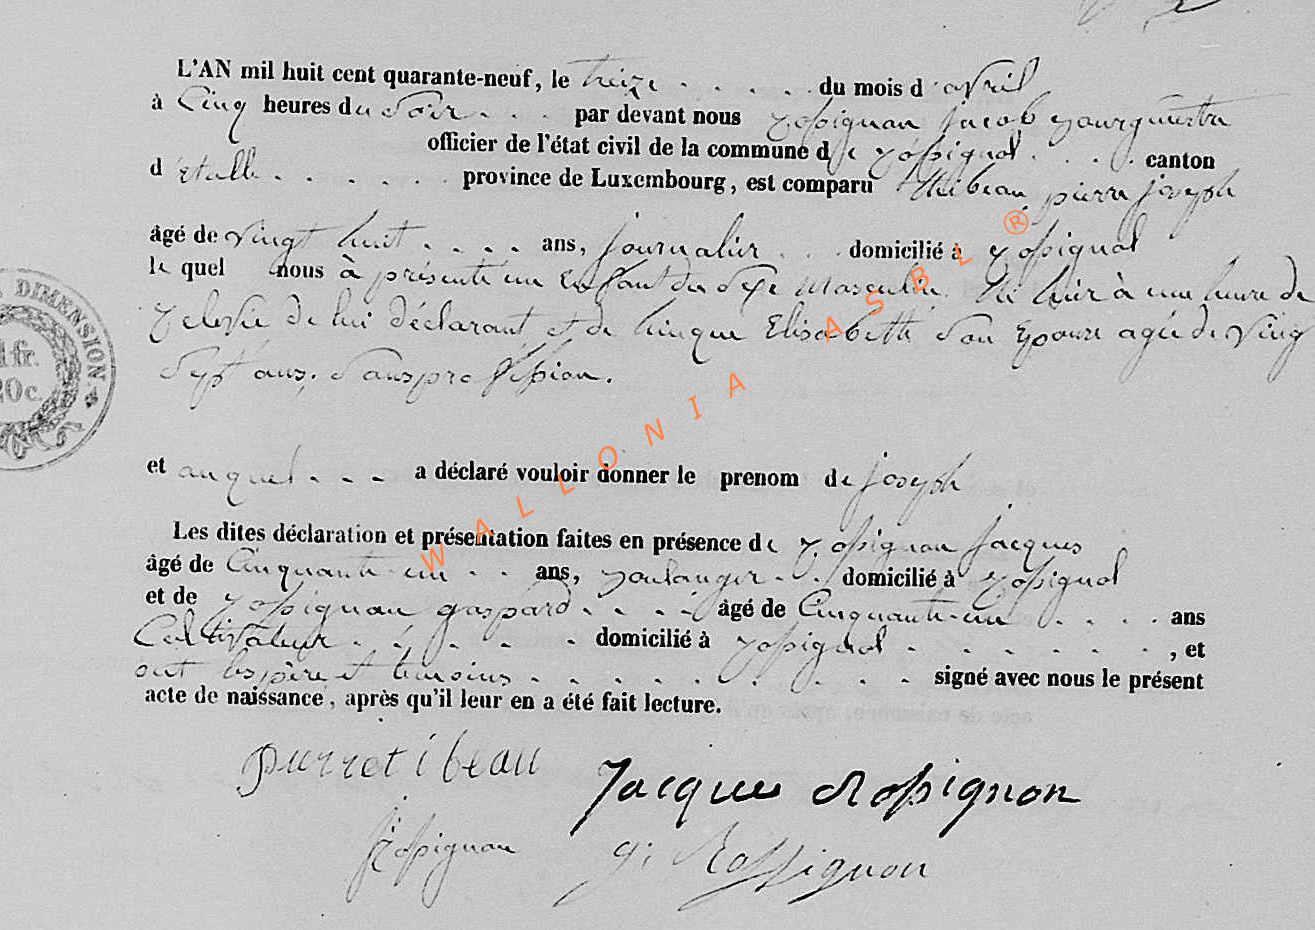 L'AN mil huit cent quarante-neuf, le treize . . . . . du mois d'avril
à Cinq heures du Soir . . . par devant nous Rossignon jacob Bourguestre
officier de l'état civil de la commune de Rossignol . . . . canton
d'étalle . . . . . . province de Luxembourg, est comparu thibeau pierre joseph
âgé de vingt huit . . . . ans, journalier . . . domicilié à Rossignol
le quel nous à présenté un Enfant du Sexe Masculin. Né hier à une heure de
de lui déclarant et de Elisabeth Son Epouse agée de Vingt
Sept ans. Sans profession.
et auquel . . . a déclaré vouloir donner le prenom de joseph
Les dites déclaration et présentation faites en présence de Rossignon jacques
âgé de Cinquante-un . . . ans, Boulanger . . . domicilié à Rossignol
et de Rossignon gaspard . . . . . âgé de Cinquante-un . . . . ans
Cultivateur . . . . . . domicilié à Rossignol . . . . . . . , et
ont les père et temoins . . . . . . . . . signé avec nous le présent
acte de naissance, après qu'il leur en a été fait lecture.
pierre tibeau Jacques Rossignon
Rossignon g. Rossignon
DIMENSION
1 fr.
20 c.
WALLONIA ASBL ®